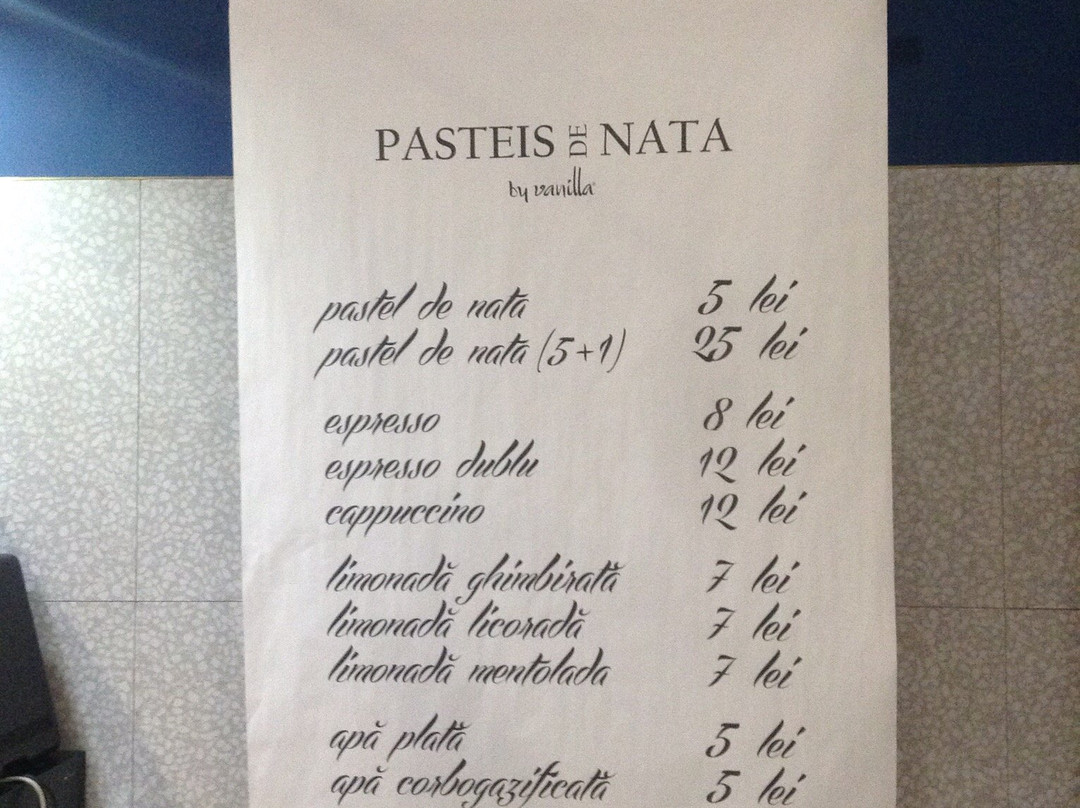 PASTEIS DE NATA
by vanilla
pastel de nata 5 lei
pastel de nata (5+1) 25 lei
espresso 8 lei
espresso dublu 12 lei
cappuccino 12 lei
limonadă ghimbirată 7 lei
limonadă licoradă 7 lei
limonadă mentolada 7 lei
apă plată 5 lei
apă corbogazificată 5 lei